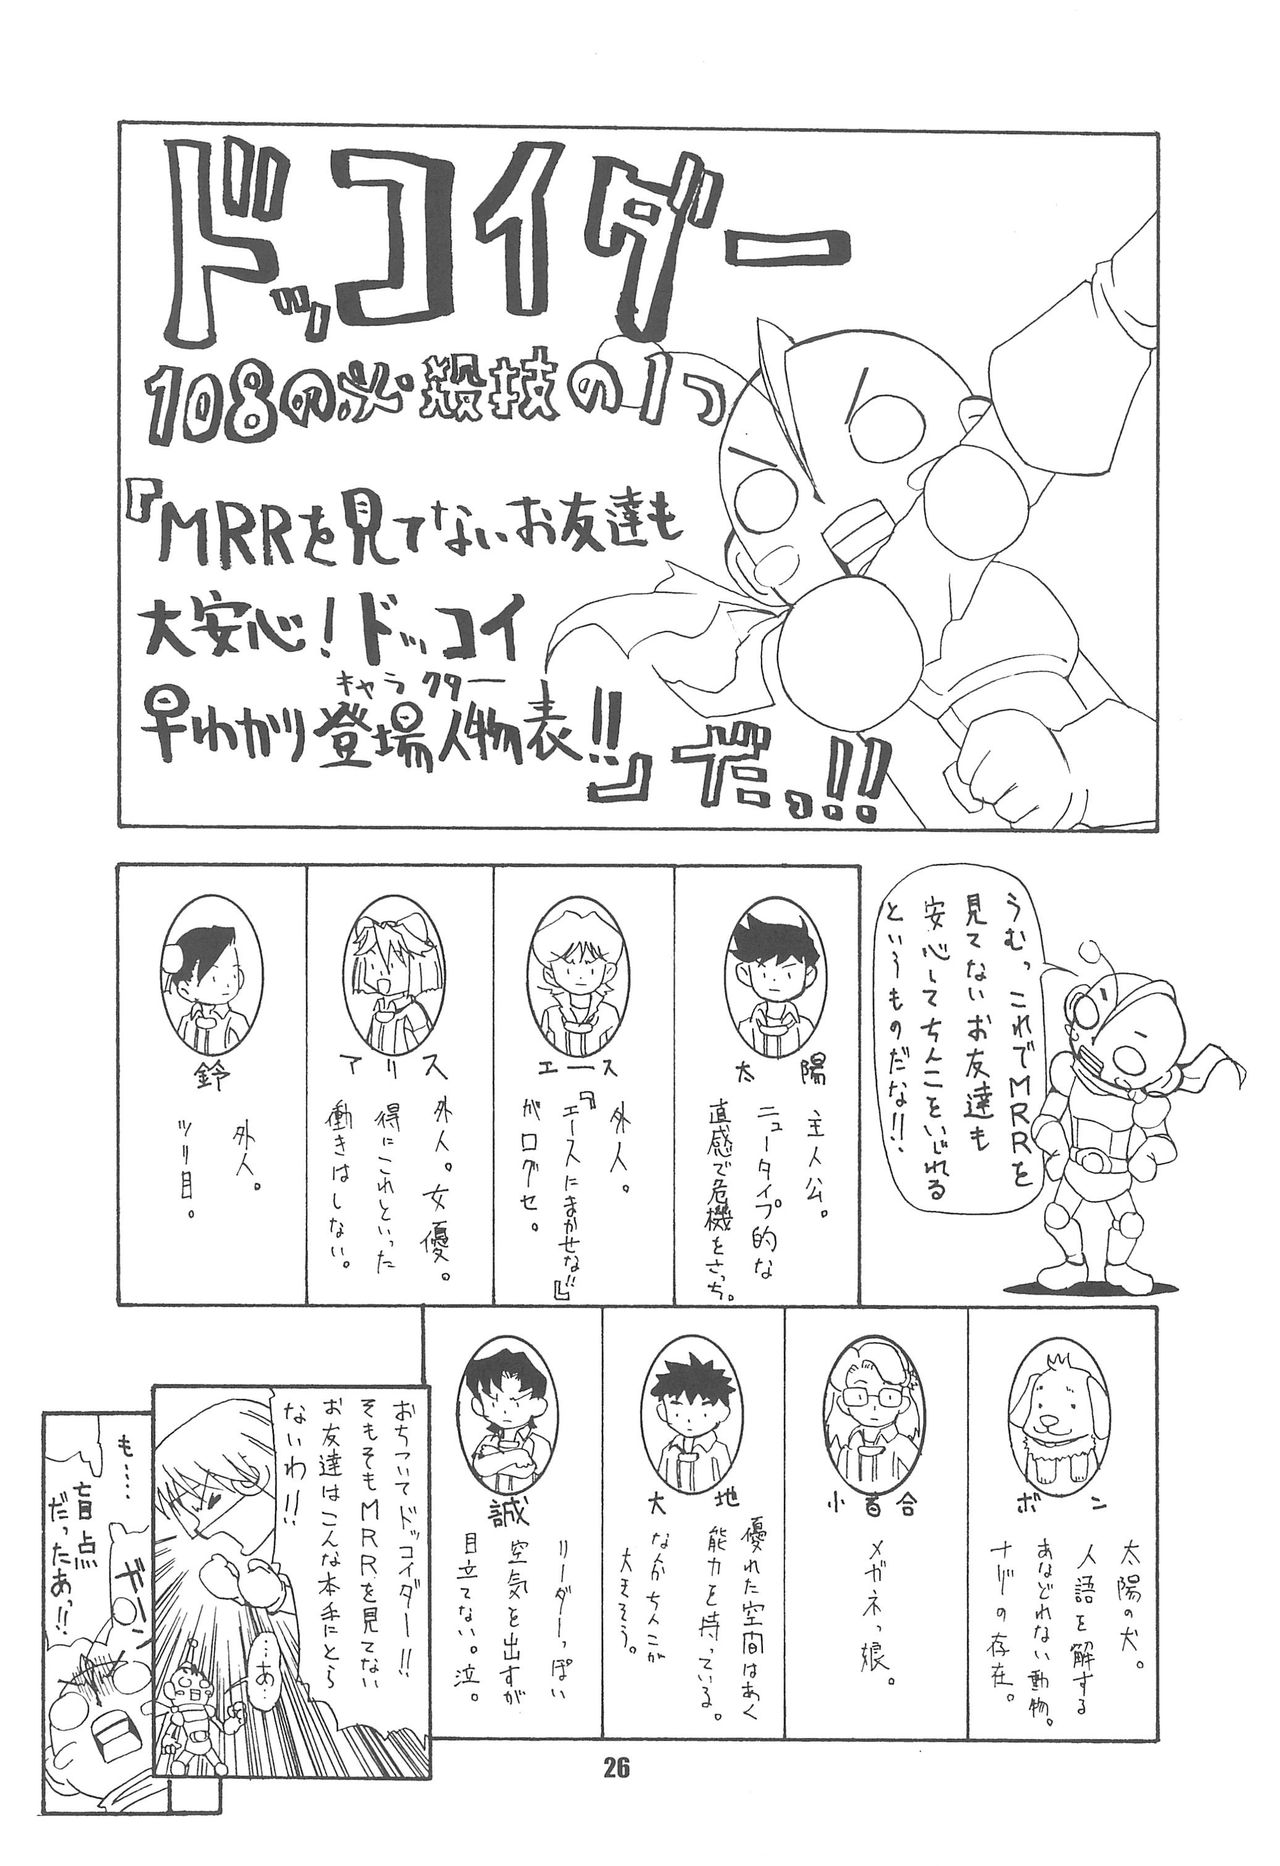 ドッコイダー
108の必殺技の1つ
『MRRを見てないお友達も
大安心!ドッコイ
キャラクター
早わかり登場人物表!!』だっ!!
うむっこれでMRRを
見てないお友達も
安心してちんこをいじれる
というものだな!!
太陽
主人公。
ニュータイプ的な
直感で危機をさっち。
エース
外人。
『エースにまかせな』
がログセ。
アリス
外人。女優。
得にこれといった
働きはしない。
鈴
外人。
ツリ目。
ボン
太陽の犬。
人語を解する
あなどれない動物。
ナゾの存在。
小百合
メガネっ娘。
大地
優れた空間はあく
能力を持っている。
なんかちんこが
大きそう。
誠
リーダーっぽい
空気を出すが
目立てない。泣。
おちついてドッコイダー!!
そもそもMRRを見てない
お友達はこんな本手にとら
ないわ!!
…あ…
も……
盲点
だったあっ!!
ガーン
26